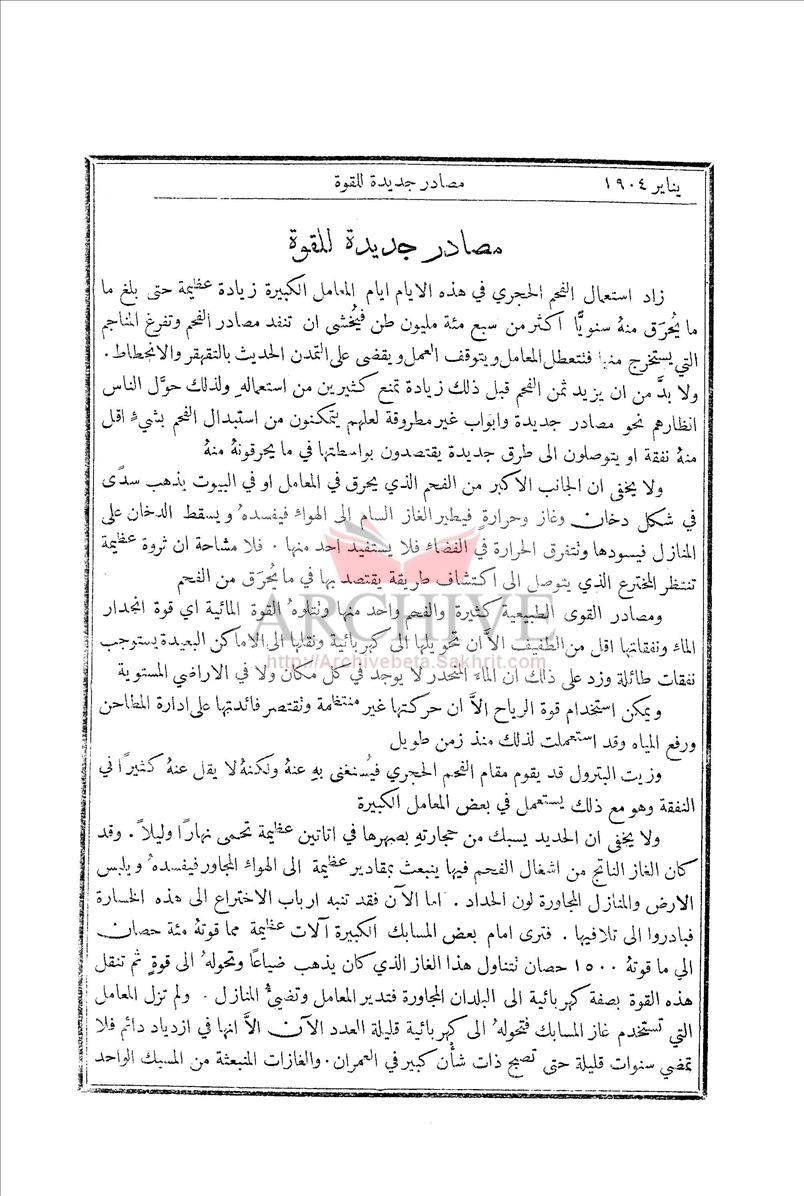 يناير ١٩٠٤
مصادر جديدة للقوة
مصادر جديدة للقوة
زاد استعمال الفحم الحجري في هذه الايام ايام المعامل الكبيرة زيادة عظيمة حتى بلغ ما
ما يُحرَق منهُ سنويًّا اكثر من سبع مئة مليون طن فيُخشى ان تنفد مصادر الفحم وتفرغ المناجم
التي يستخرج منها فتتعطل المعامل ويتوقف العمل ويقضى على التمدن الحديث بالتقهقر والانحطاط.
ولا بدَّ من ان يزيد ثمن الفحم قبل ذلك زيادة تمنع كثيرين من استعماله ولذلك حوَّل الناس
انظارهم نحو مصادر جديدة وابواب غير مطروقة لعلهم يتمكنون من استبدال الفحم بشيءٍ اقل
منهُ نفقة او يتوصلون الى طرق جديدة يقتصدون بواسطتها في ما يحرقونهُ منهُ
ولا يخفى ان الجانب الاكبر من الفحم الذي يحرق في المعامل او في البيوت يذهب سدًى
في شكل دخان وغاز وحرارةٍ فيطير الغاز السام الى الهواءِ فيفسدهُ ويسقط الدخان على
المنازل فيسودها وتتفرق الحرارة في الفضاءِ فلا يستفيد احد منها . فلا مشاحة ان ثروة عظيمة
تنتظر المخترع الذي يتوصل الى اكتشاف طريقة يقتصد بها في ما يُحرَق من الفحم
ومصادر القوى الطبيعية كثيرة والفحم واحد منها وتتلوهُ القوة المائية اي قوة انحدار
الماءِ ونفقاتها اقل من الطفيف الاَّ ان تحويلها الى كهربائية ونقلها الى الاماكن البعيدة يستوجب
نفقات طائلة وزد على ذلك ان الماءَ المنحدر لا يوجد في كل مكان ولا في الاراضي المستوية
ويمكن استخدام قوة الرياح الاَّ ان حركتها غير منتظمة وتقتصر فائدتها على ادارة المطاحن
ورفع المياه وقد استعملت لذلك منذ زمن طويل
وزيت البترول قد يقوم مقام الفحم الحجري فيُستغنى بهِ عنهُ ولكنهُ لا يقل عنهُ كثيرًا في
النفقة وهو مع ذلك يستعمل في بعض المعامل الكبيرة
ولا يخفى ان الحديد يسبك من حجارتهِ بصهرها في اتاتين عظيمة تحمى نهارًا وليلاً . وقد
كان الغاز الناتج من اشغال الفحم فيها ينبعث بمقادير عظيمة الى الهواءِ المجاور فيفسدهُ ويلبس
الارض والمنازل المجاورة لون الحداد . اما الآن فقد تنبه ارباب الاختراع الى هذه الخسارة
فبادروا الى تلافيها . فترى امام بعض المسابك الكبيرة آلات عظيمة مما قوتهُ مئة حصان
الى ما قوتهُ ١٥٠٠ حصان تتناول هذا الغاز الذي كان يذهب ضياعًا وتحولهُ الى قوةٍ ثم تنقل
هذه القوة بصفة كهربائية الى البلدان المجاورة فتدير المعامل وتضيءُ المنازل . ولم تزل المعامل
التي تستخدم غاز المسابك فتحولهُ الى كهربائية قليلة العدد الآن الاَّ انها في ازدياد دائم فلا
تمضي سنوات قليلة حتى تصبح ذات شأن كبير في العمران . والغازات المنبعثة من المسبك الواحد
ARCHIVE
http://Archivebeta.Sakhrit.com